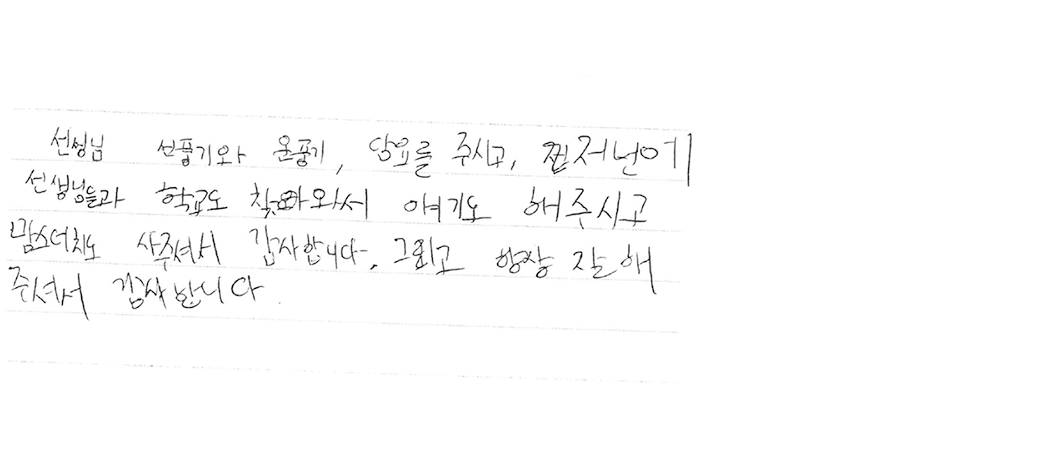 선생님 선풍기와 온풍기, 담요를 주시고, 저번에
선생님들과 학교도 찾아와서 얘기도 해주시고
맘스터치도 사주셔서 감사합니다. 그리고 항상 잘해
주셔서 감사합니다.